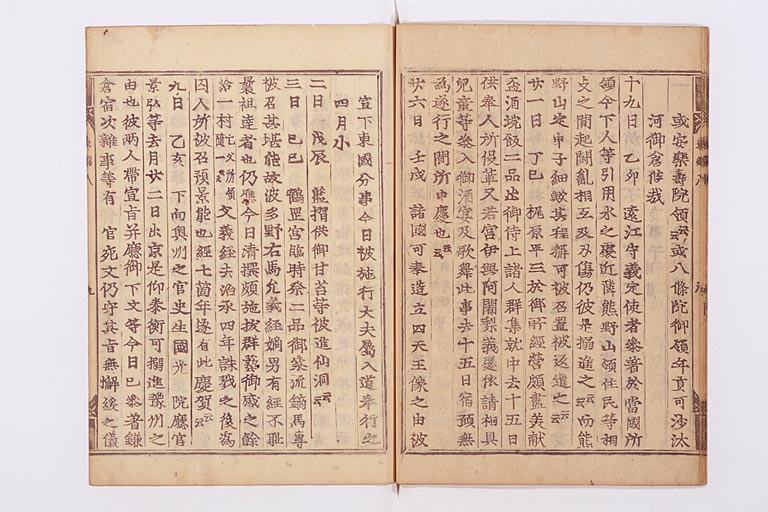 一 或安樂壽院領云云或八條院御領年貢可沙汰
河御倉修哉
十九日 乙卯 遠江守義定使者參著於當國所
領令下人等引用水之處近隣熊野山領住民等相
支之間起鬪亂相互及刃傷仍彼是搦進之云云而熊
野山定申子細歟其程稱可被召置被返遣之云云
廿一日 丁巳 梶原平三於御所經營頗盡美献
盃酒埦飯二品出御侍上諸人群集就中去十五日
供奉人所役輩又若宮伊與阿闍梨義邏依請相具
兒童等參入御酒宴及歌舞此事去十五日宿願無
為遂行之間所申慶也云云
廿六日 壬戌 諸國可奉造立四天王像之由被
宣下東國分事今日被施行大夫屬入道奉行之
四月小
二日 戊辰 藍摺供御甘苔等被進仙洞云云
三日 己巳 鶴罡宮臨時祭二品御參流鏑馬專
被召甚堪能故波多野右馬允義經嫡男有經不耻
曩祖達者也仍應今日清撰頗施抜群藝御感之餘
給一村亡父所領隨一云云義經去治承四年誅戮之後為
囚人所被召預景能也經七箇年遂有此慶賀云云
九日 乙亥 下向奥州之官史生國光 院廳官
景弘等去月廿二日出京是仰泰衡可搦進豫州之
由也彼兩人帶宣旨并廳御下文等今日已參著鎌
倉宿次雜事等有 官宛文仍守其旨無懈緩之儀